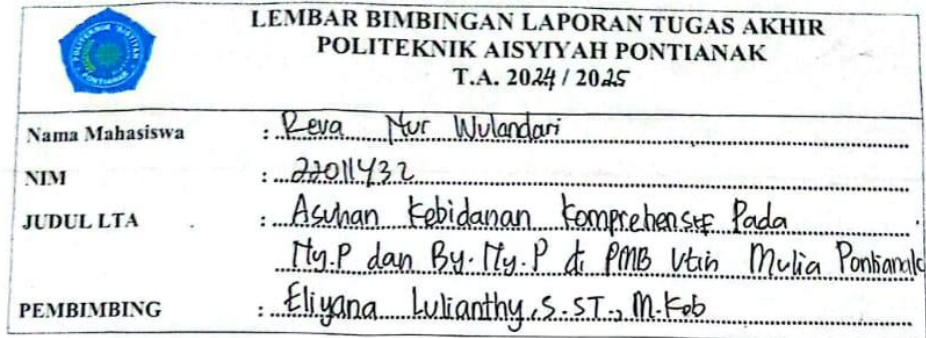 LEMBAR BIMBINGAN LAPORAN TUGAS AKHIR
POLITEKNIK AISYIYAH PONTIANAK
T.A. 2024 / 2025
Nama Mahasiswa : Reva Nur Wulandari
NIM : 22011432
JUDUL LTA : Asuhan Kebidanan Komprehensif Pada
Ny.P dan By.Ny.P di PMB Utin Mulia Pontianak
PEMBIMBING : Eliyana Lulianthy, S.ST., M.Keb